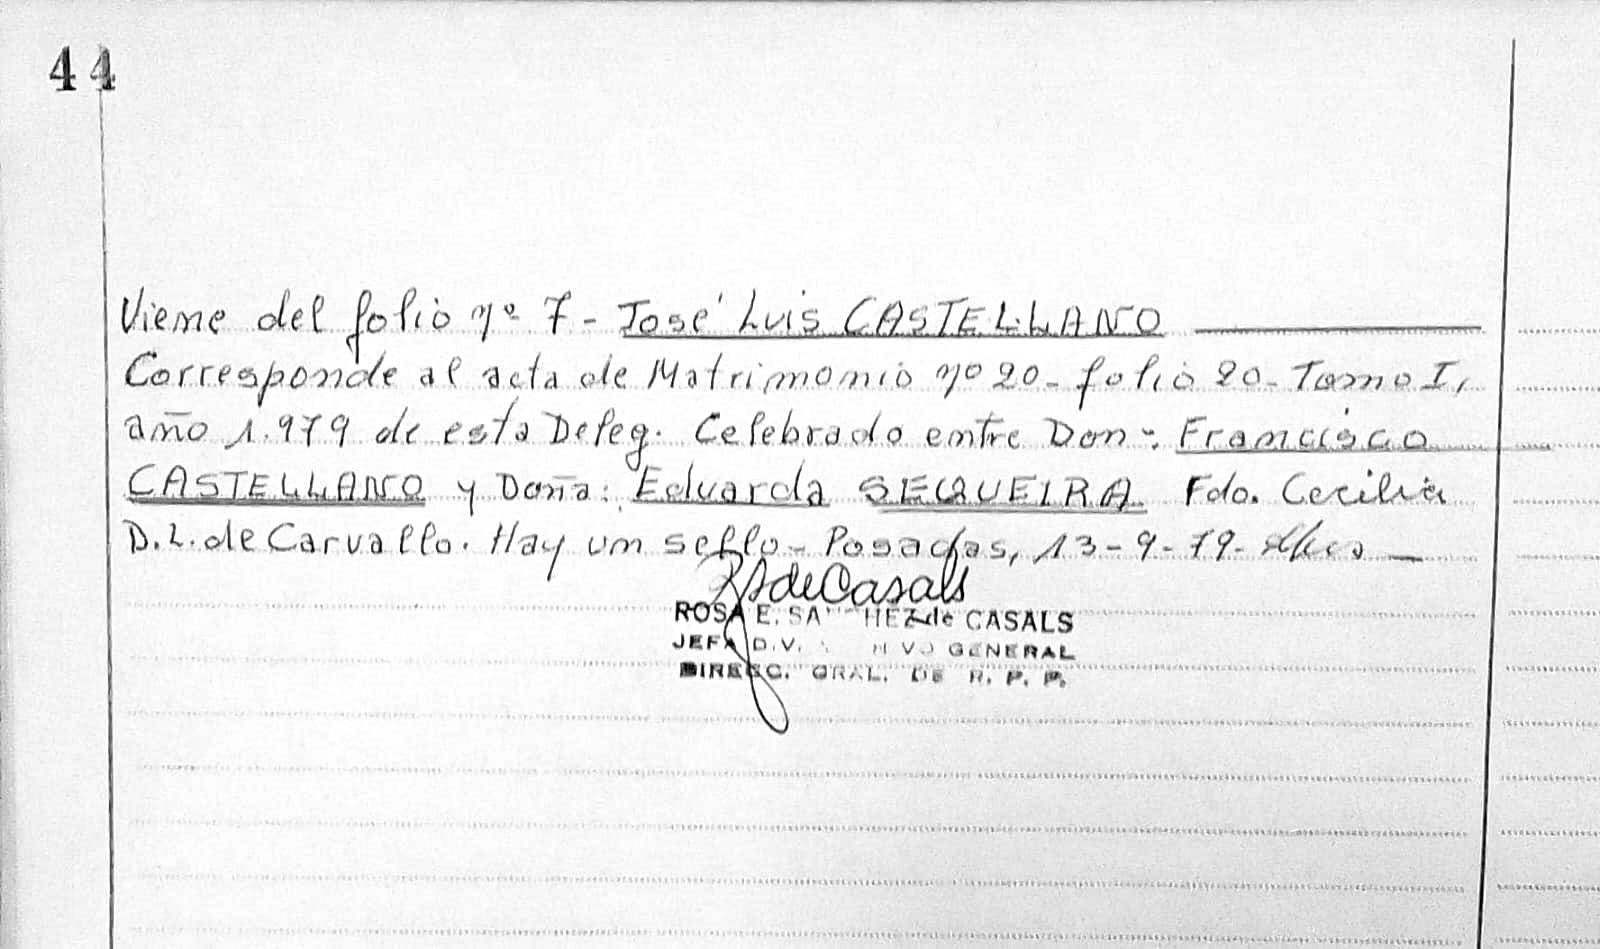 44
Viene del folio nº 7 - José Luis CASTELLANO
Corresponde al acta de Matrimonio nº 20 - folio 20 - Tomo I,
año 1.979 de esta Deleg. Celebrado entre Don: Francisco
CASTELLANO y Doña: Eduarda SEQUEIRA Fdo. Cecilia
D. L. de Carvallo. Hay un sello - Posadas, 13-9-79-
de Casals
ROSA E. SA HEZ de CASALS
JEFA DIV. VO GENERAL
DIREC. GRAL. DE R. P. P.